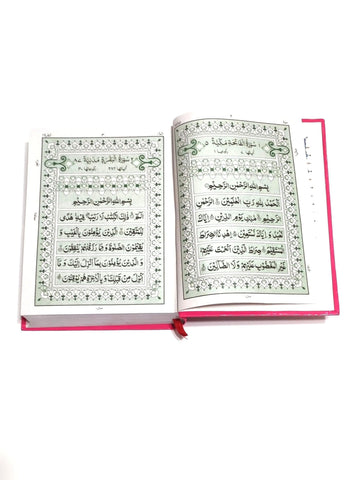 سُورَةُ الْفَاتِحَةِ مَكِّيَّةٌ ٥
بِسْمِ اللّٰهِ الرَّحْمٰنِ الرَّحِيْمِ
اَلْحَمْدُ لِلّٰهِ رَبِّ الْعٰلَمِيْنَ ۝
الرَّحْمٰنِ الرَّحِيْمِ ۝ مٰلِكِ يَوْمِ الدِّيْنِ ۝ اِيَّاكَ
نَعْبُدُ وَ اِيَّاكَ نَسْتَعِيْنُ ۝ اِهْدِنَا الصِّرَاطَ
الْمُسْتَقِيْمَ ۝ صِرَاطَ الَّذِيْنَ اَنْعَمْتَ عَلَيْهِمْ
غَيْرِ الْمَغْضُوْبِ عَلَيْهِمْ وَ لَا الضَّآلِّيْنَ ۝
سُورَةُ الْبَقَرَةِ مَدَنِيَّةٌ ٨٧
بِسْمِ اللّٰهِ الرَّحْمٰنِ الرَّحِيْمِ
الٓمّٓ ۝ ذٰلِكَ الْكِتٰبُ لَا رَيْبَ ۛ فِيْهِ ۛ هُدًى
لِّلْمُتَّقِيْنَ ۝ الَّذِيْنَ يُؤْمِنُوْنَ بِالْغَيْبِ وَ
يُقِيْمُوْنَ الصَّلٰوةَ وَ مِمَّا رَزَقْنٰهُمْ يُنْفِقُوْنَ ۝ وَ
الَّذِيْنَ يُؤْمِنُوْنَ بِمَآ اُنْزِلَ اِلَيْكَ وَ مَآ
اُنْزِلَ مِنْ قَبْلِكَ وَ بِالْاٰخِرَةِ هُمْ يُوْقِنُوْنَ ۝